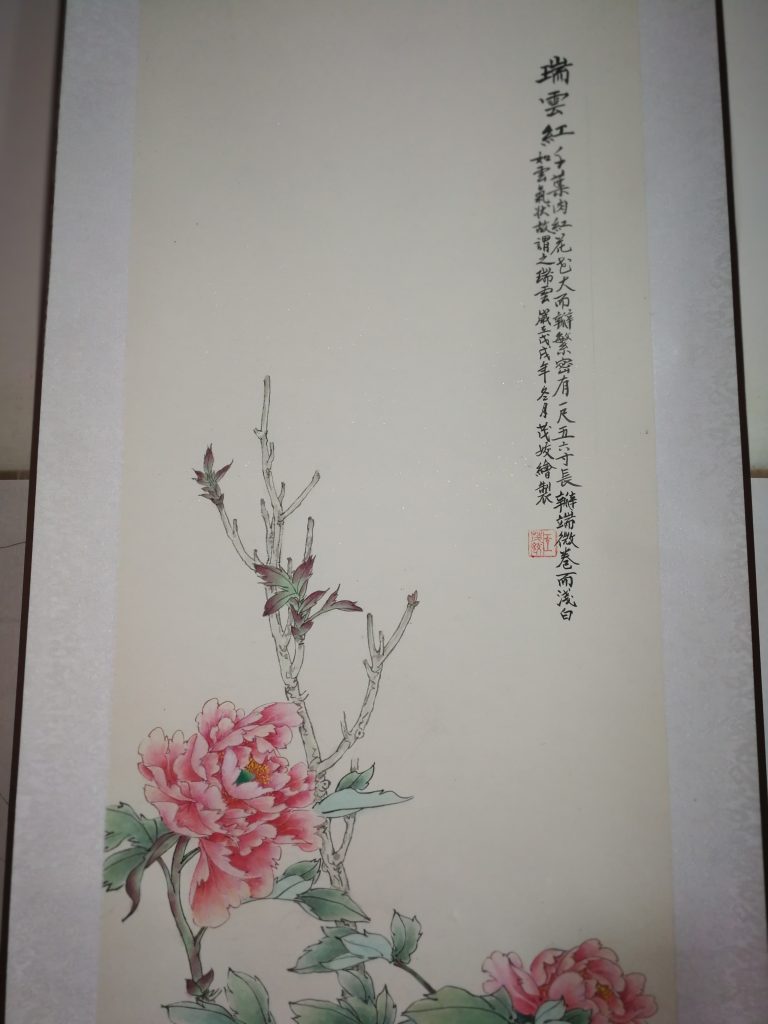 瑞雲紅千葉肉紅花也大而瓣繁密有一尺五六寸長瓣端微卷而淺白
如雲氣狀故謂之瑞雲歲在戊戌年冬月茂姣繪製